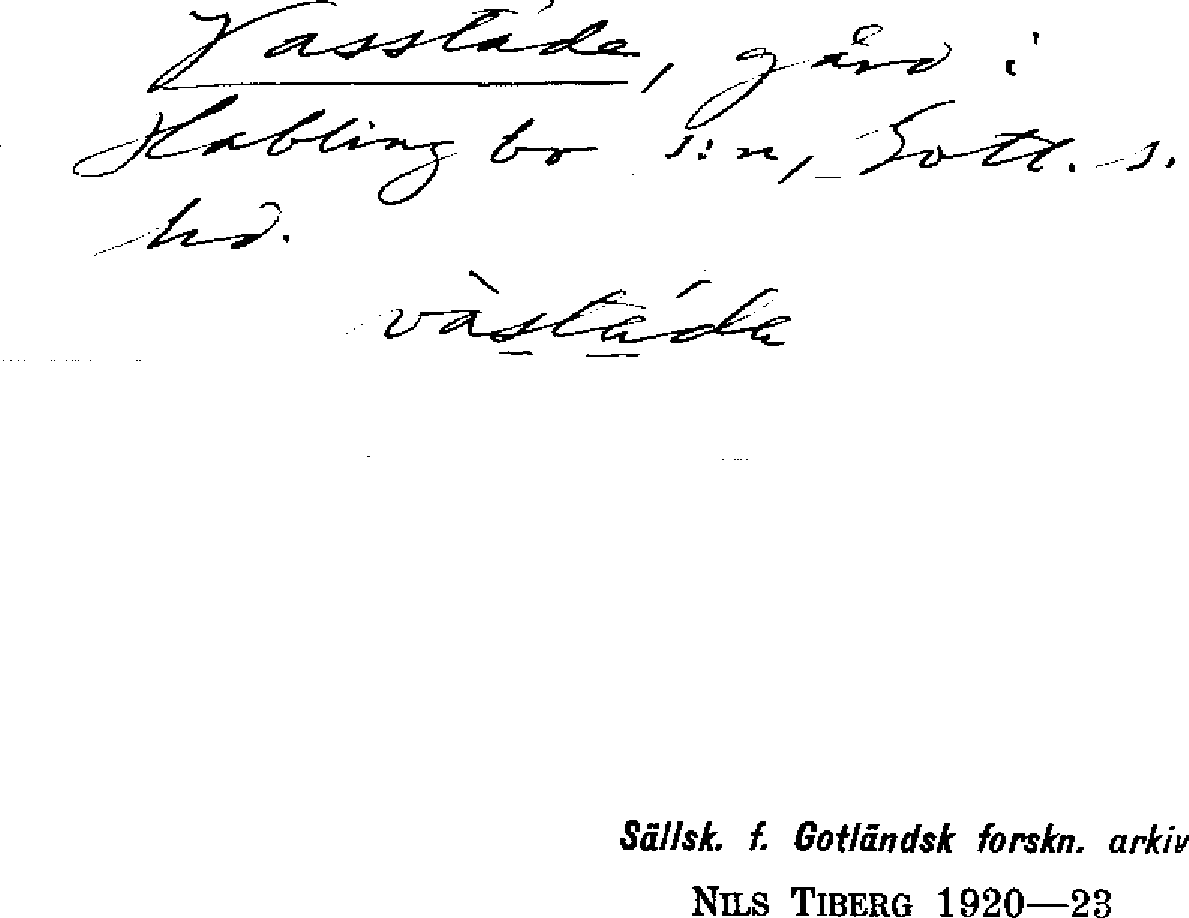 Vasstäde, gård i
Hablingbo s:n, Gotl. s.
hd.
vàstáda
Sällsk. f. Gotländsk forskn. arkiv
NILS TIBERG 1920—23